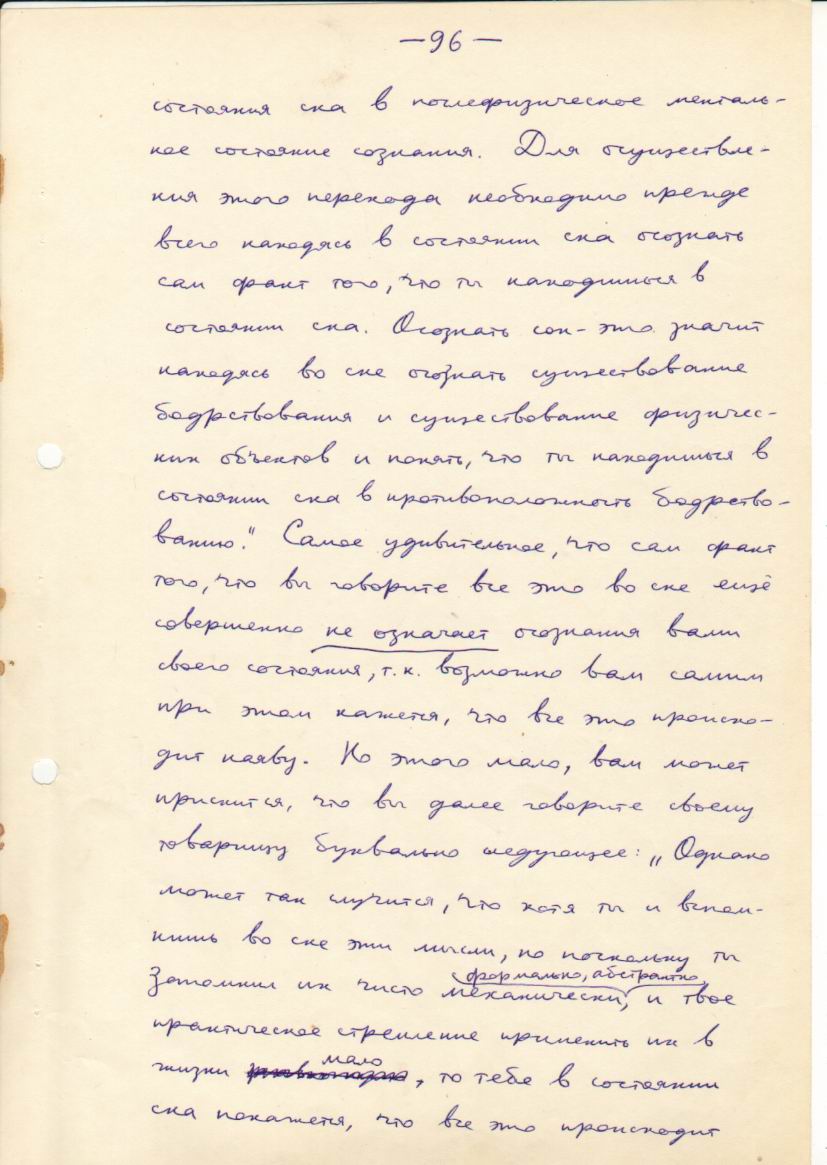 —96—
состояния сна в послефизическое менталь-
ное состояние сознания. Для осуществле-
ния этого перехода необходимо прежде
всего находясь в состоянии сна осознать
сам факт того, что ты находишься в
состоянии сна. Осознать сон – это значит
находясь во сне осознать существование
бодрствования и существование физичес-
ких объектов и понять, что ты находишься в
состоянии сна в противоположность бодрство-
ванию." Самое удивительное, что сам факт
того, что вы говорите все это во сне ещё
совершенно не означает осознания вами
своего состояния, т.к. возможно вам самим
при этом кажется, что все это происхо-
дит наяву. Но этого мало, вам может
приснится, что вы далее говорите своему
товарищу буквально следующее: „Однако
может так случится, что хотя ты и вспом-
нишь во сне эти мысли, но поскольку ты
формально, абстрактно,
запомнил их чисто механически, и твое
практическое стремление применить их в
мало
жизни , то тебе в состоянии
сна покажется, что все это происходит